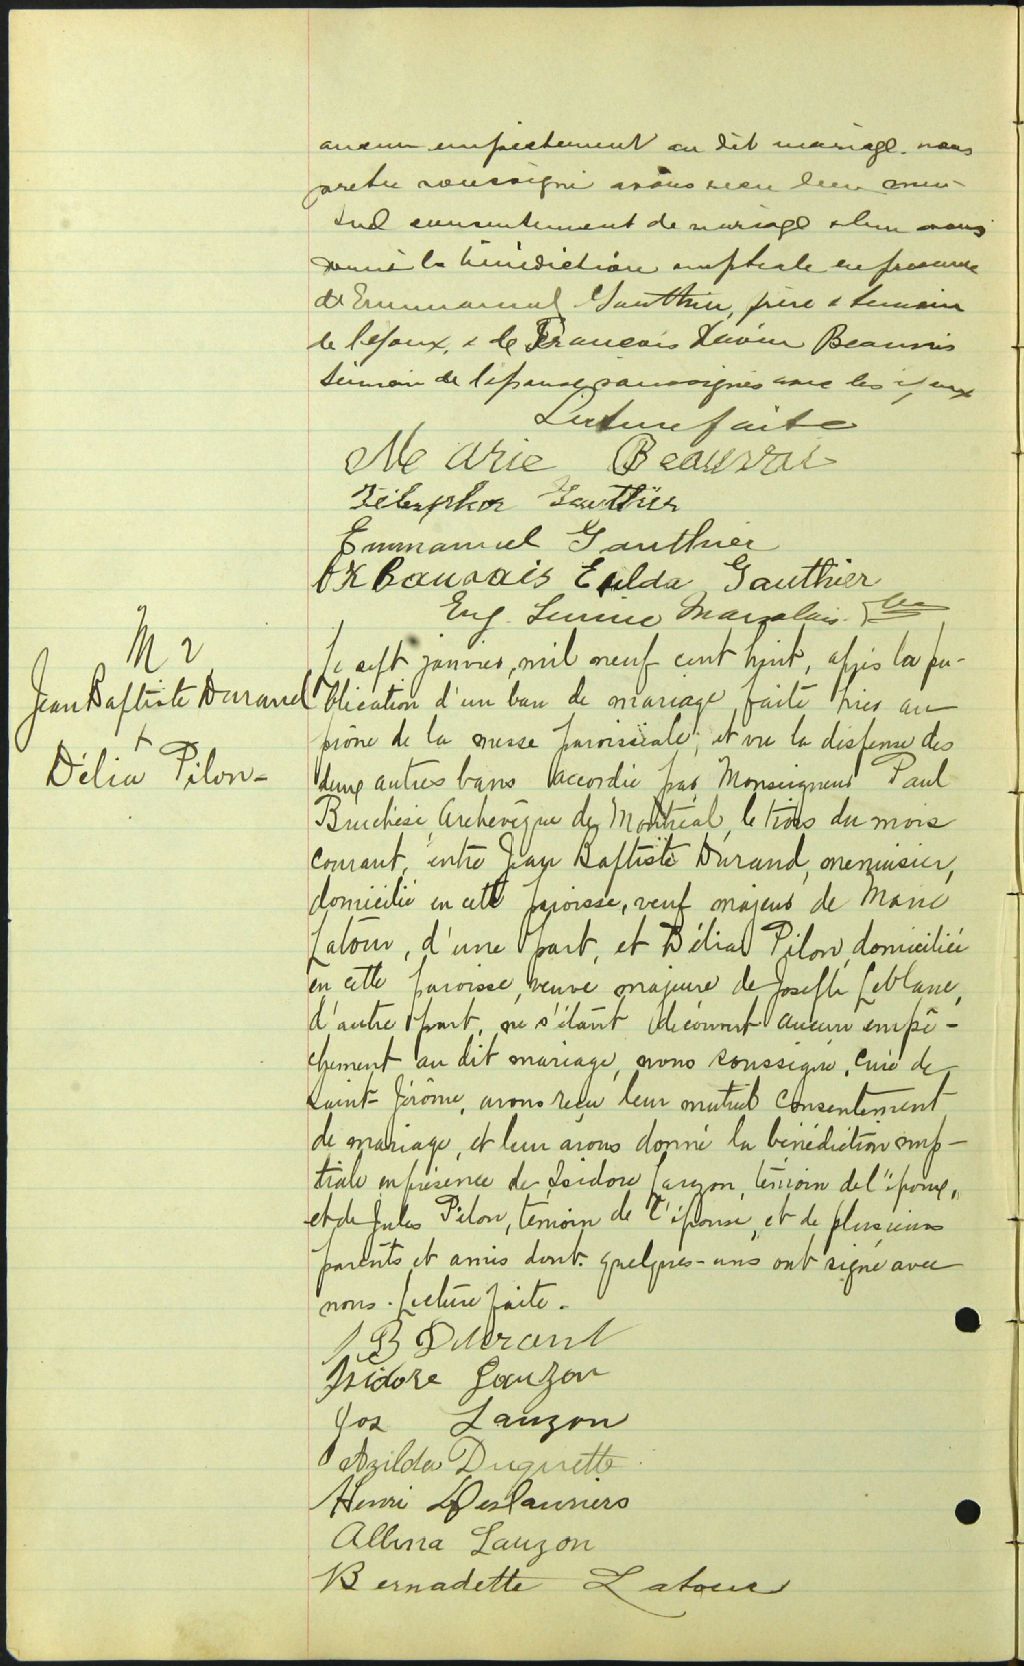 aucun empêchement au dit mariage nous
prêtre soussigné avons reçu leur mu-
tuel consentement de mariage & leur avons
donné la bénédiction nuptiale en presence
de Emmanuel Gauthier, père & temoin
de l'époux, & de François Xavier Beauvais
témoin de l'épouse soussignés avec les époux
Lecture faite
Marie Beauvais
Télesphor Gauthier
Emmanuel Gauthier
FX Bauvais Exilda Gauthier
Eug. Marsolais Ptre
M 2
Jean Baptiste Durand
+
Délia Pilon-
Le sept janvier, mil neuf cent huit, après la pu-
blication d'un ban de mariage, faite hier au
prône de la messe paroissiale, et vu la dispense des
deux autres bans accordée par Monseigneur Paul
Bruchési, Archevêque de Montréal, le trois du mois
courant, entre Jean Baptiste Durand, menuisier,
domicilié en cette paroisse, veuf majeur de Marie
Latour, d'une part, et Délia Pilon, domiciliée
en cette paroisse, veuve majeure de Joseph Leblanc,
d'autre part, ne s'étant découvert aucun empê-
chement au dit mariage, nous soussigné, curé de
Saint-Jérôme, avons reçu leur mutuel consentement
de mariage, et leur avons donné la bénédiction nup-
tiale en présence de Isidore Lauzon, témoin de l'époux,
et de Jules Pilon, témoin de l'épouse, et de plusieurs
parents et amis dont quelques-uns ont signé avec
nous. Lecture faite.
J B Durant
Isidore Lauzon
Jos Lauzon
Azilda Duquette
Henri Deslauriers
Albina Lauzon
Bernadette Latour